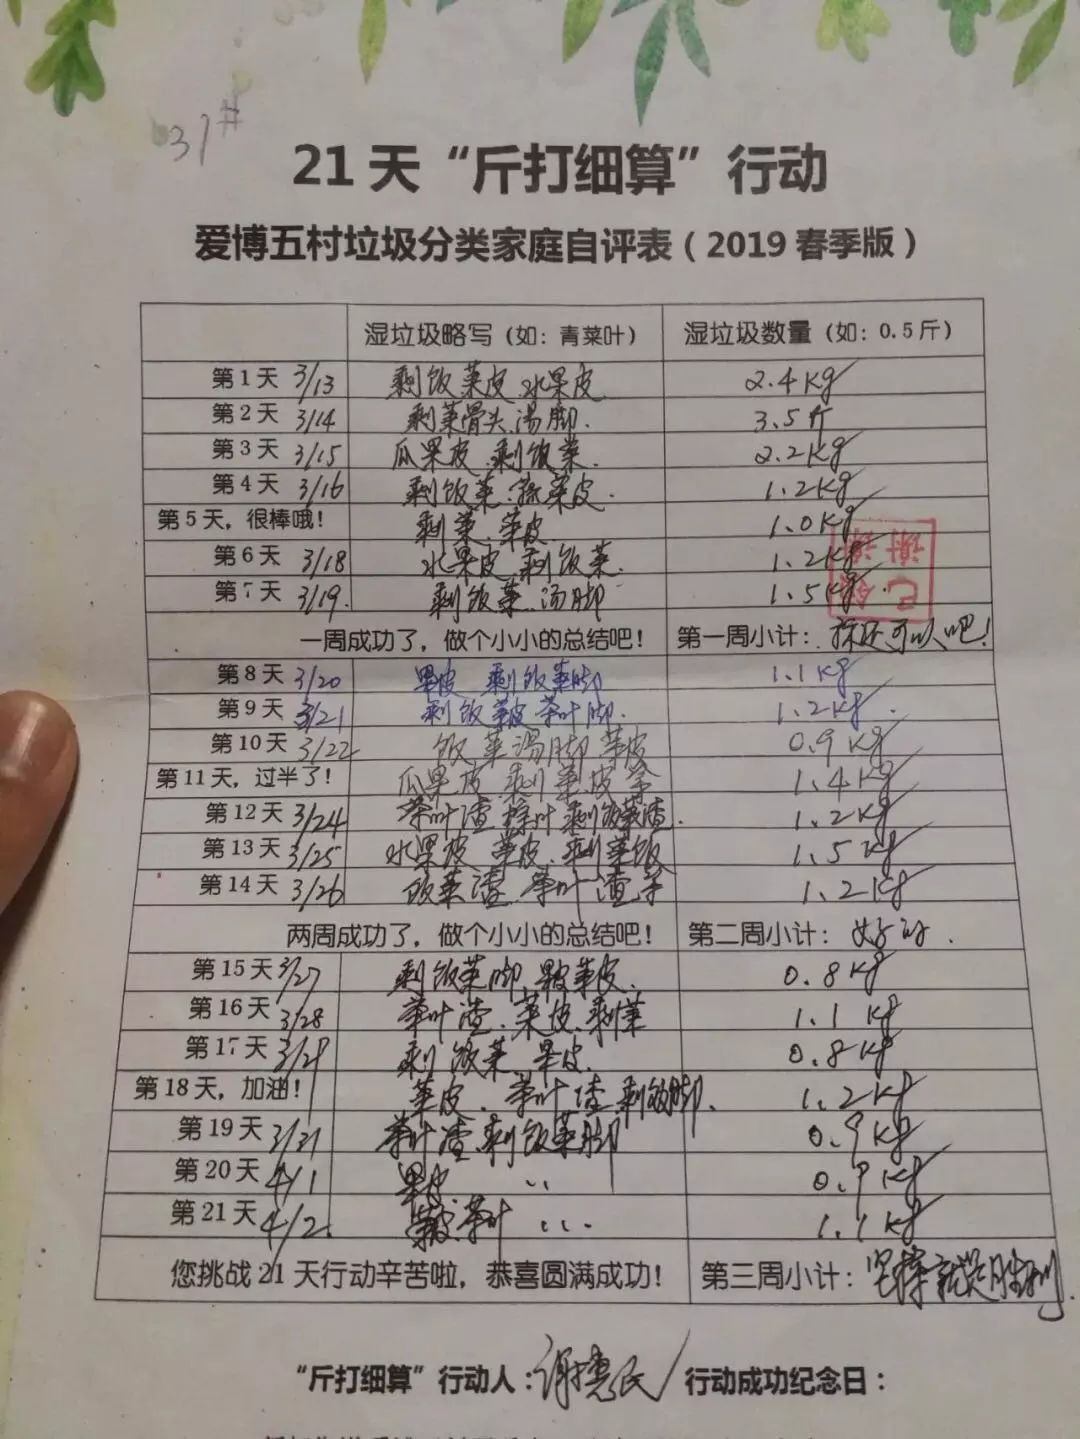 31#
21 天“斤打细算”行动
爱博五村垃圾分类家庭自评表（2019 春季版）
湿垃圾略写（如: 青菜叶） 湿垃圾数量（如: 0.5 斤）
第 1 天 3/13 剩饭菜皮.水果皮 2.4kg
第 2 天 3/14 剩菜骨头.汤脚. 3.5斤
第 3 天 3/15 瓜果皮.剩饭菜. 2.2kg
第 4 天 3/16 剩饭菜.蔬菜皮. 1.2kg
第 5 天, 很棒哦! 剩菜.菜皮 1.0kg
第 6 天 3/18 水果皮.剩饭菜. 1.2kg
第 7 天 3/19. 剩饭菜.汤脚 1.5kg.
谢谢
一周成功了, 做个小小的总结吧! 第一周小计: 还可以吧!
第 8 天 3/20 果皮 剩饭菜脚 1.1kg
第 9 天 3/21 剩饭菜皮茶叶脚. 1.2kg.
第 10 天 3/22 饭菜汤脚菜皮 0.9kg
第 11 天, 过半了! 瓜果皮.剩菜皮等 1.4kg
第 12 天 3/24 茶叶渣 粽叶 剩饭菜渣. 1.2kg
第 13 天 3/25 水果皮 菜皮.剩菜饭 1.5kg
第 14 天 3/26 饭菜渣.茶叶渣等 1.2kg
两周成功了, 做个小小的总结吧! 第二周小计: 好的.
第 15 天 3/27 剩饭菜脚.果皮菜皮. 0.8kg
第 16 天 3/28 茶叶渣.菜皮.剩菜 1.1kg
第 17 天 3/29 剩饭菜.果皮. 0.8kg
第 18 天, 加油! 菜皮.茶叶渣剩饭脚. 1.2kg
第 19 天 3/31 茶叶渣.剩饭菜脚 0.9kg
第 20 天 4/1 果皮 .. 0.9kg
第 21 天 4/2. 菜皮.茶叶 ... 1.1kg
您挑战 21 天行动辛苦啦, 恭喜圆满成功! 第三周小计: 坚持就是胜利.
“斤打细算”行动人: 谢惠民 行动成功纪念日: